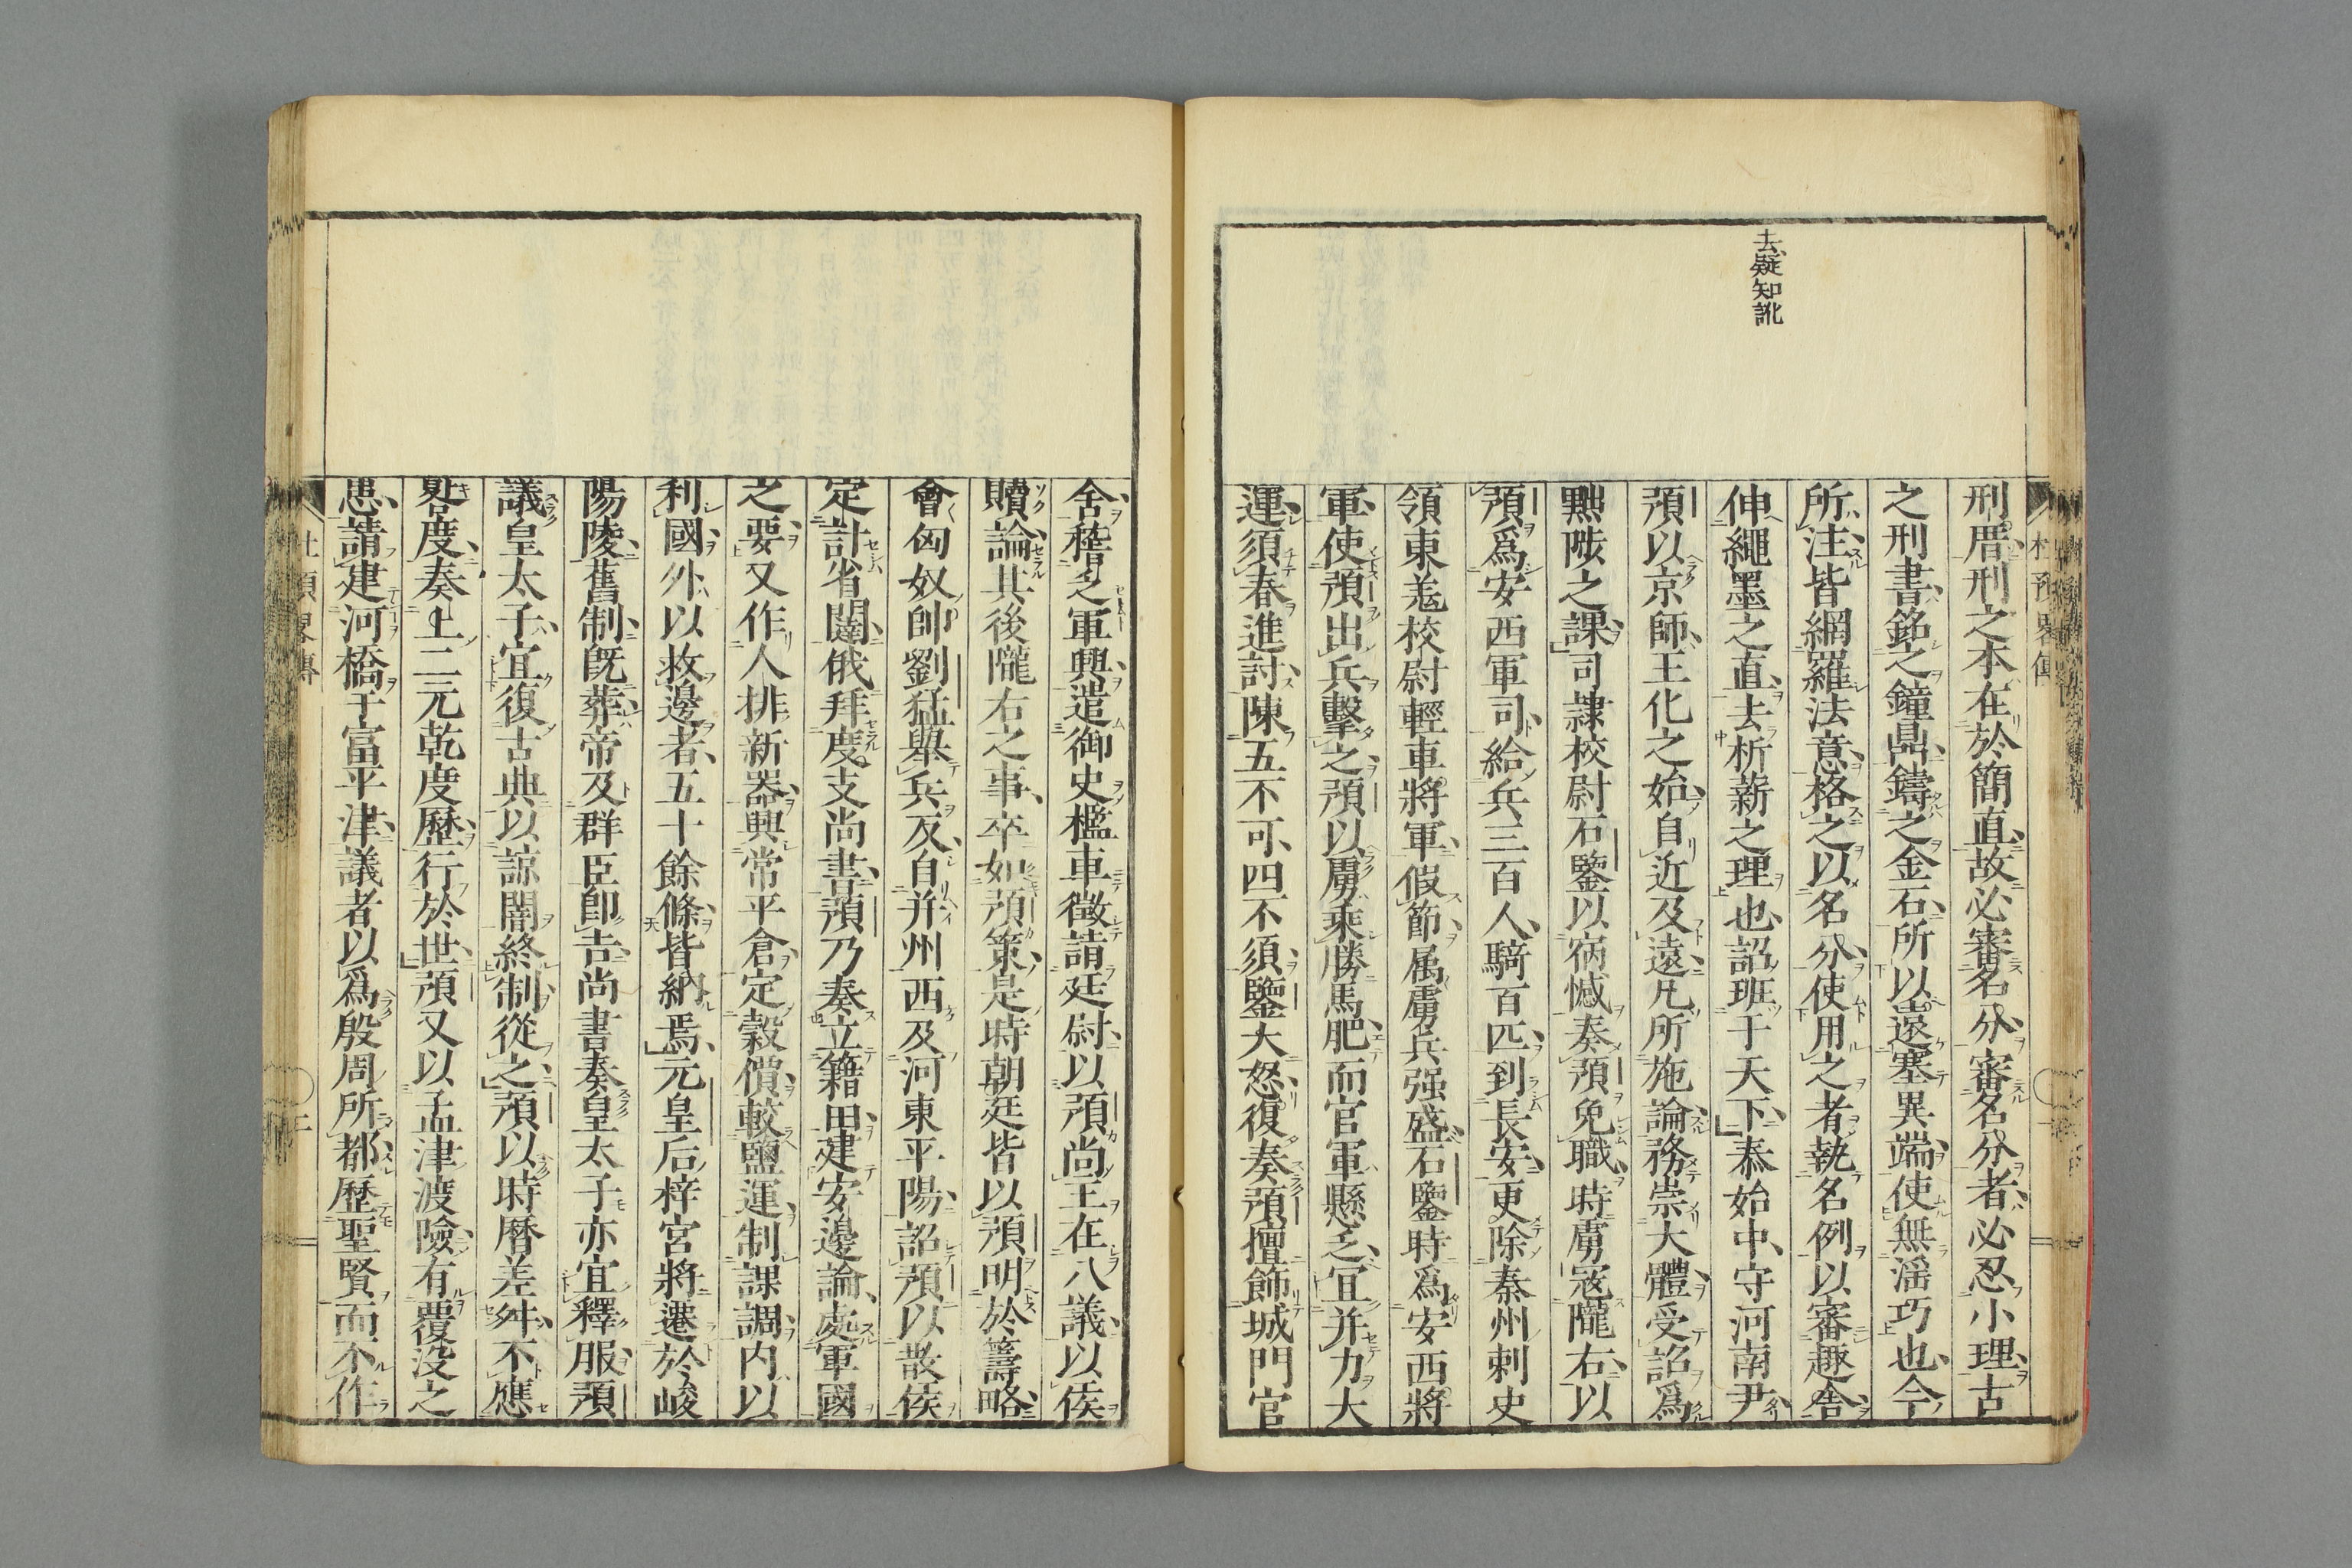 去疑知訛
刑厝刑之本在於簡直故必審名分審名分者必忍小理古
之刑書銘之鐘鼎鑄之金石所以遠塞異端使無淫巧也今
所注皆網羅法意格之以名分使用之者執名例以審趣舎
伸繩墨之直去析薪之理也詔班于天下泰始中守河南尹
預以京師王化之始自近及遠凡所施論務崇大體受詔爲
黜陟之課司隷校尉石鑒以宿憾奏預免職時虜寇隴右以
預爲安西軍司給兵三百人騎百匹到長安更除秦州刺史
領東羗校尉輕車將軍假節属虜兵强盛石鑒時爲安西將
軍使預出兵擊之預以虜乘勝馬肥而官軍懸乏宜并力大
運須春進討陳五不可四不須鑒大怒復奏預擅飾城門官
舎稽乏軍興遣御史檻車徵請廷尉以預尚主在八議以侯
贖論其後隴右之事卒如預策是時朝廷皆以預明於籌略
會匈奴帥劉猛舉兵反自并州西及河東平陽詔預以散侯
定計省闥俄拜度支尚書預乃奏立籍田建安邊論處軍國
之要又作人排新器興常平倉定穀價較鹽運制課調内以
利國外以救邊者五十餘條皆納焉元皇后梓宮將遷於峻
陽陵舊制既葬帝及群臣卽吉尚書奏皇太子亦宜釋服預
議皇太子宜復古典以諒闇終制從之預以時曆差舛不應
晷度奏上二元乾度歷行於世預又以孟津渡險有覆没之
患請建河橋于富平津議者以爲殷周所都歷聖賢而不作
杜預畧傳